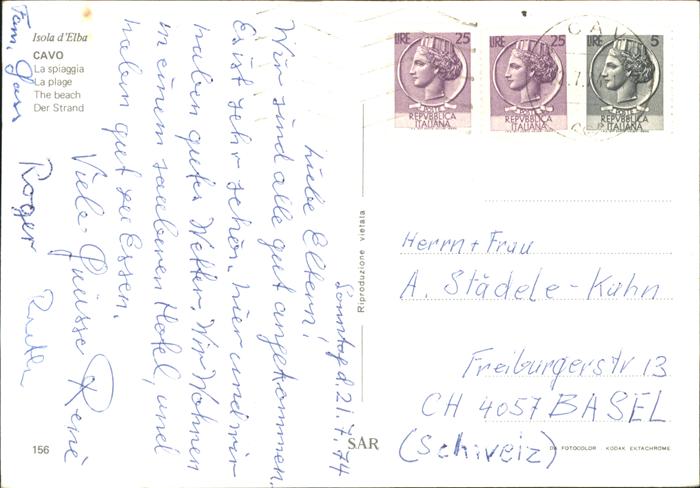 Isola d'Elba
CAVO
La spiaggia
La plage
The beach
Der Strand
Sonntag d. 21.7.74
Liebe Eltern!
Wir sind alle gut angekommen.
Es ist sehr schön hier und wir
haben gutes Wetter. Wir Wohnen
in einem sauberen Hotel, und
haben gut zu Essen.
Viele Grüsse René
Roger
Fam.
156
SAR
Riproduzione vietata
LIRE 25
POSTE
REPVBBLICA
ITALIANA
LIRE 25
REPVBBLICA
ITALIANA
LIRE 5
REPVBBLICA
ITALIANA
CAV
Herrn + Frau
A. Städele-Kuhn
Freiburgerstr 13
CH 4057 BASEL
(Schweiz)
FOTOCOLOR KODAK EKTACHROME